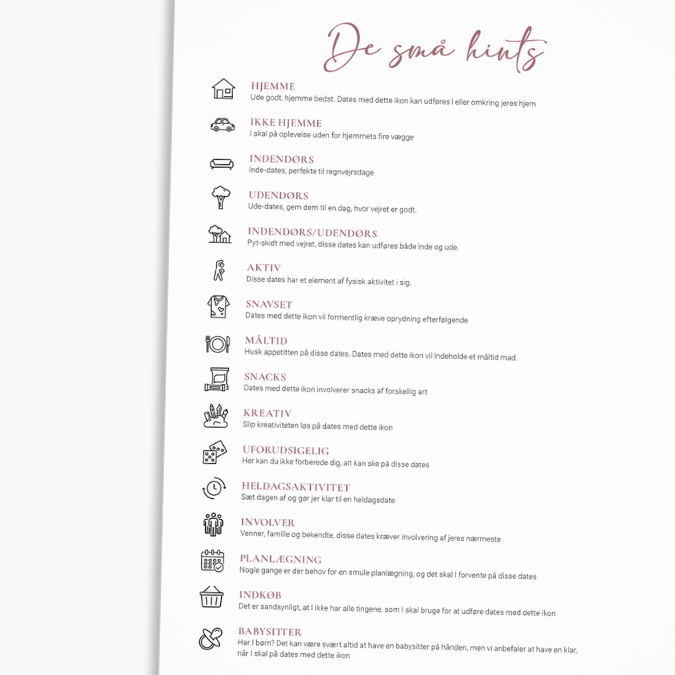 De små hints
HJEMME
Ude godt, hjemme bedst. Dates med dette ikon kan udføres i eller omkring jeres hjem
IKKE HJEMME
I skal på oplevelse uden for hjemmets fire vægge
INDENDØRS
Inde-dates, perfekte til regnvejrsdage
UDENDØRS
Ude-dates, gem dem til en dag, hvor vejret er godt.
INDENDØRS/UDENDØRS
Pyt-skidt med vejret, disse dates kan udføres både inde og ude.
AKTIV
Disse dates har et element af fysisk aktivitet i sig.
SNAVSET
Dates med dette ikon vil formentlig kræve oprydning efterfølgende
MÅLTID
Husk appetitten på disse dates. Dates med dette ikon vil indeholde et måltid mad.
SNACKS
Dates med dette ikon involverer snacks af forskellig art
KREATIV
Slip kreativiteten løs på dates med dette ikon
UFORUDSIGELIG
Her kan du ikke forberede dig, alt kan ske på disse dates
HELDAGSAKTIVITET
Sæt dagen af og gør jer klar til en heldagsdate
INVOLVER
Venner, familie og bekendte, disse dates kræver involvering af jeres nærmeste
PLANLÆGNING
Nogle gange er der behov for en smule planlægning, og det skal I forvente på disse dates
INDKØB
Det er sandsynligt, at I ikke har alle tingene, som I skal bruge for at udføre dates med dette ikon
BABYSITTER
Har I børn? Det kan være svært altid at have en babysitter på hånden, men vi anbefaler at have en klar,
når I skal på dates med dette ikon